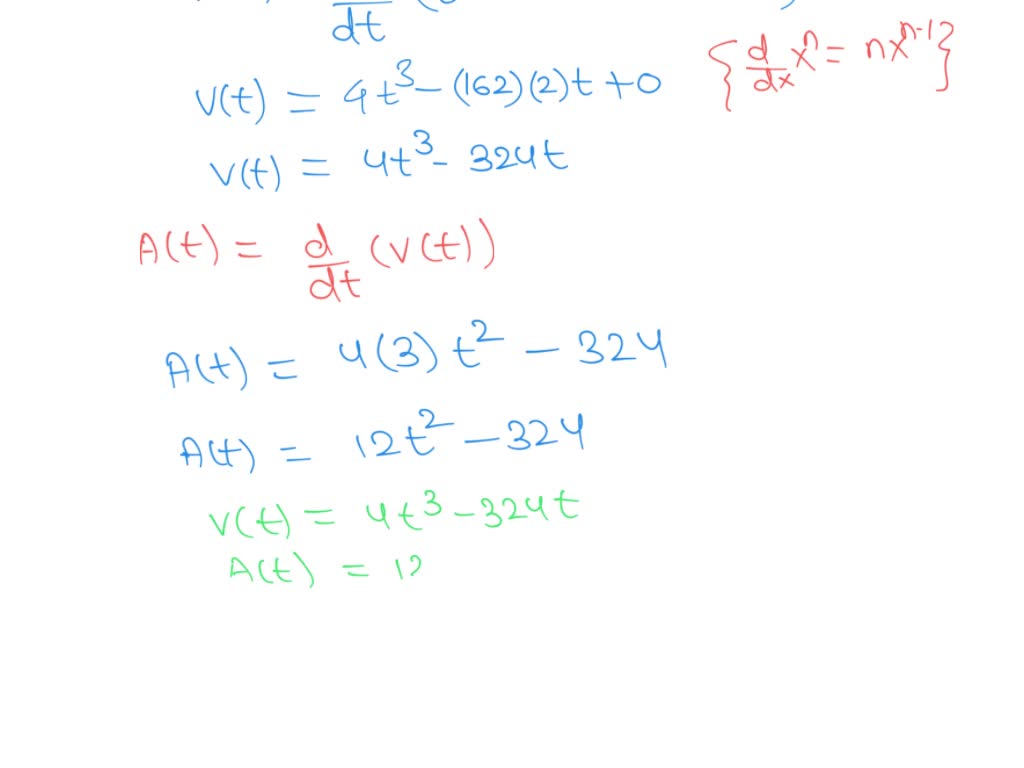 dt
V(t) = 4t³ - (162)(2)t + 0 {d/dx xⁿ = nxⁿ⁻¹}
V(t) = 4t³ - 324t
A(t) = d/dt (V(t))
A(t) = 4(3)t² - 324
A(t) = 12t² - 324
V(t) = 4t³ - 324t
A(t) = 12